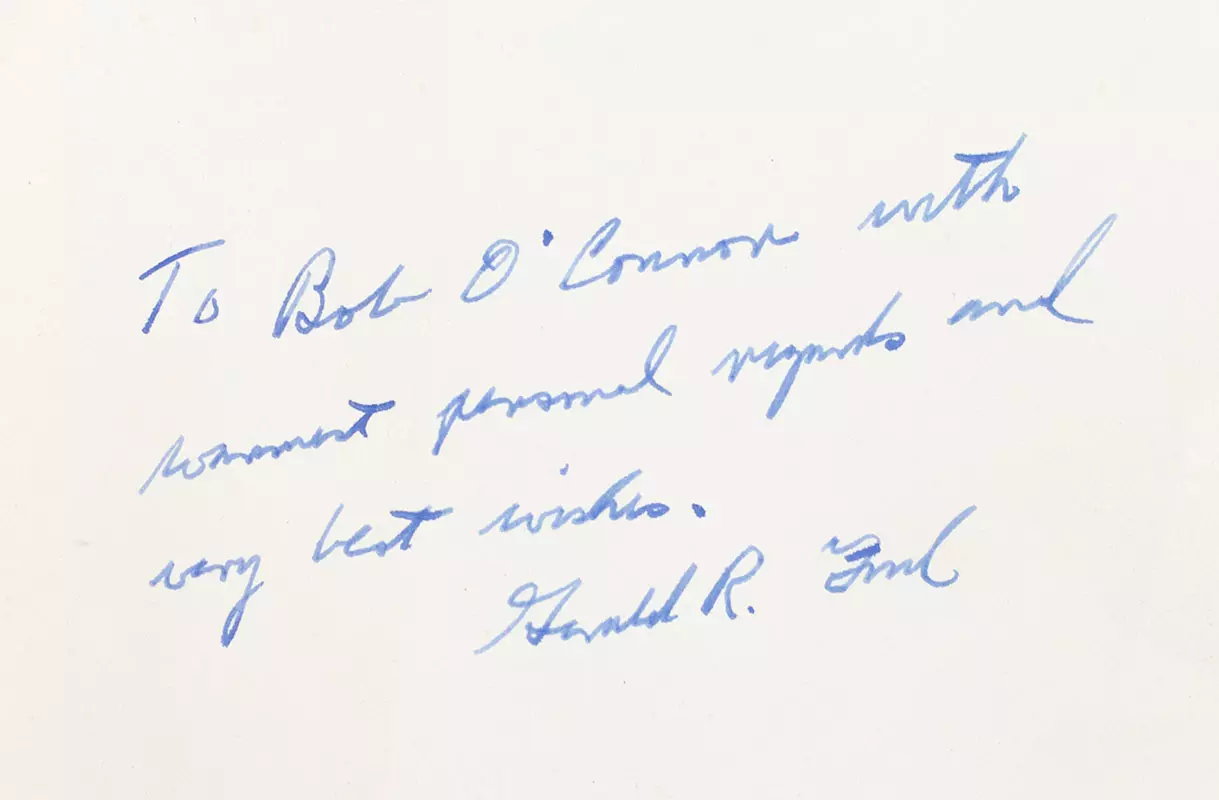 To Bob O'Connor with
warmest personal regards and
very best wishes.
Gerald R. Ford